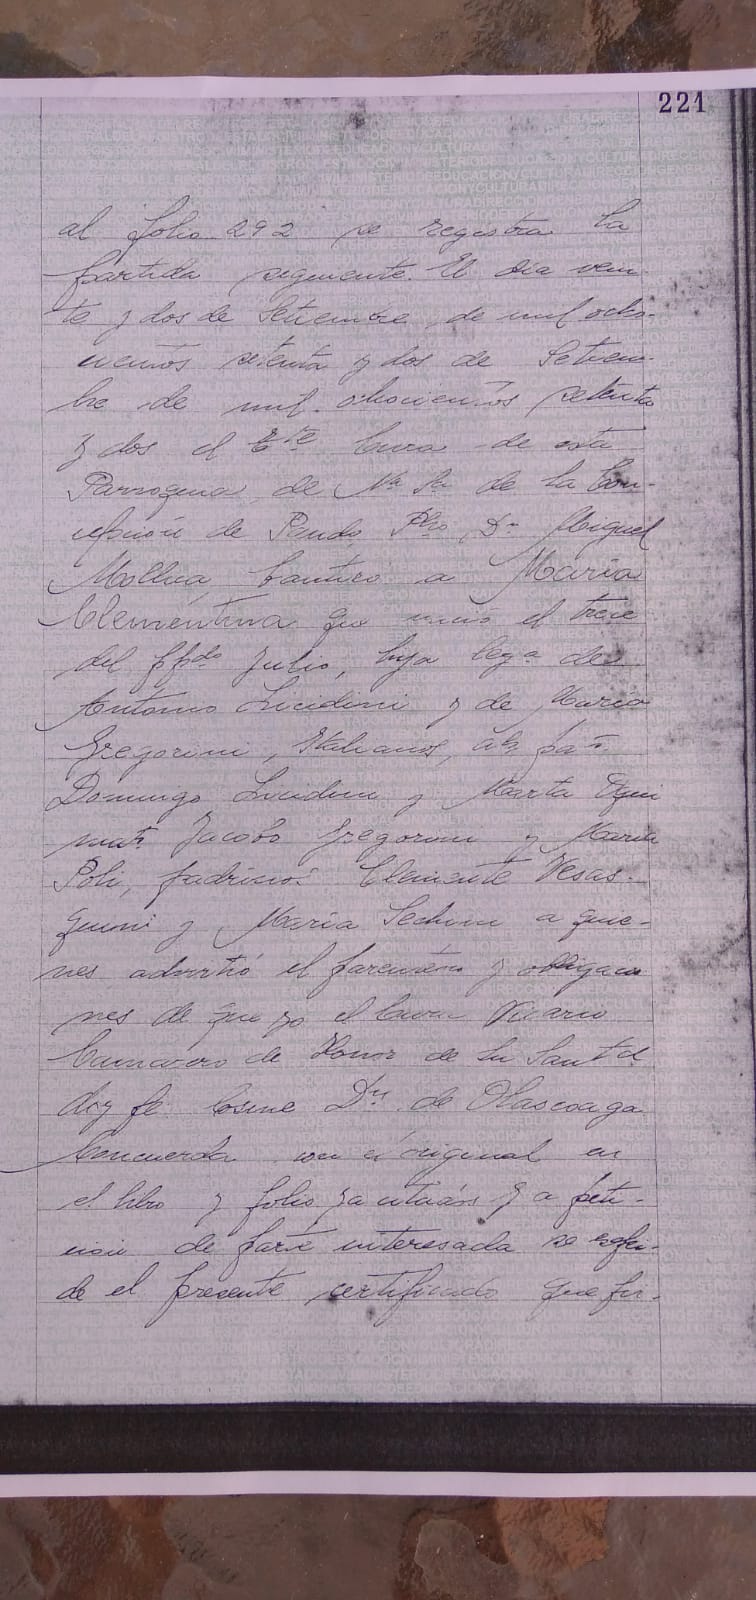 221
al folio 292 se registra la
partida siguiente. El dia vein-
te y dos de Setiembre, de mil ocho-
cientos setenta y dos de Setiem-
bre de mil ochocientos setenta
y dos el Tte Cura de esta
Parroquia de Na Sa de la Con-
cepción de Pando, Pbro Dn Miguel
bautizó a Maria
Clementina que nació el trece
del ppdo Julio, hija lega de
Antonio Lucidini y de Maria
Gregorini, Italianos, ab. pats
Domingo Lucidini y Marta
mats Jacobo Gregorini y Maria
Poli, padrinos: Clemente Vesas-
quini y Maria Sechini a quie-
nes advirtió el parentesco y obligacio
nes de que yo el Cura Vicario
Camarero de Honor de Su Santd
doy fé Cosme Dn de Olascoaga
Concuerda con el original en
el libro y folio ya citados y a peti-
ción de parte interesada se espi-
de el presente certificado que fir-